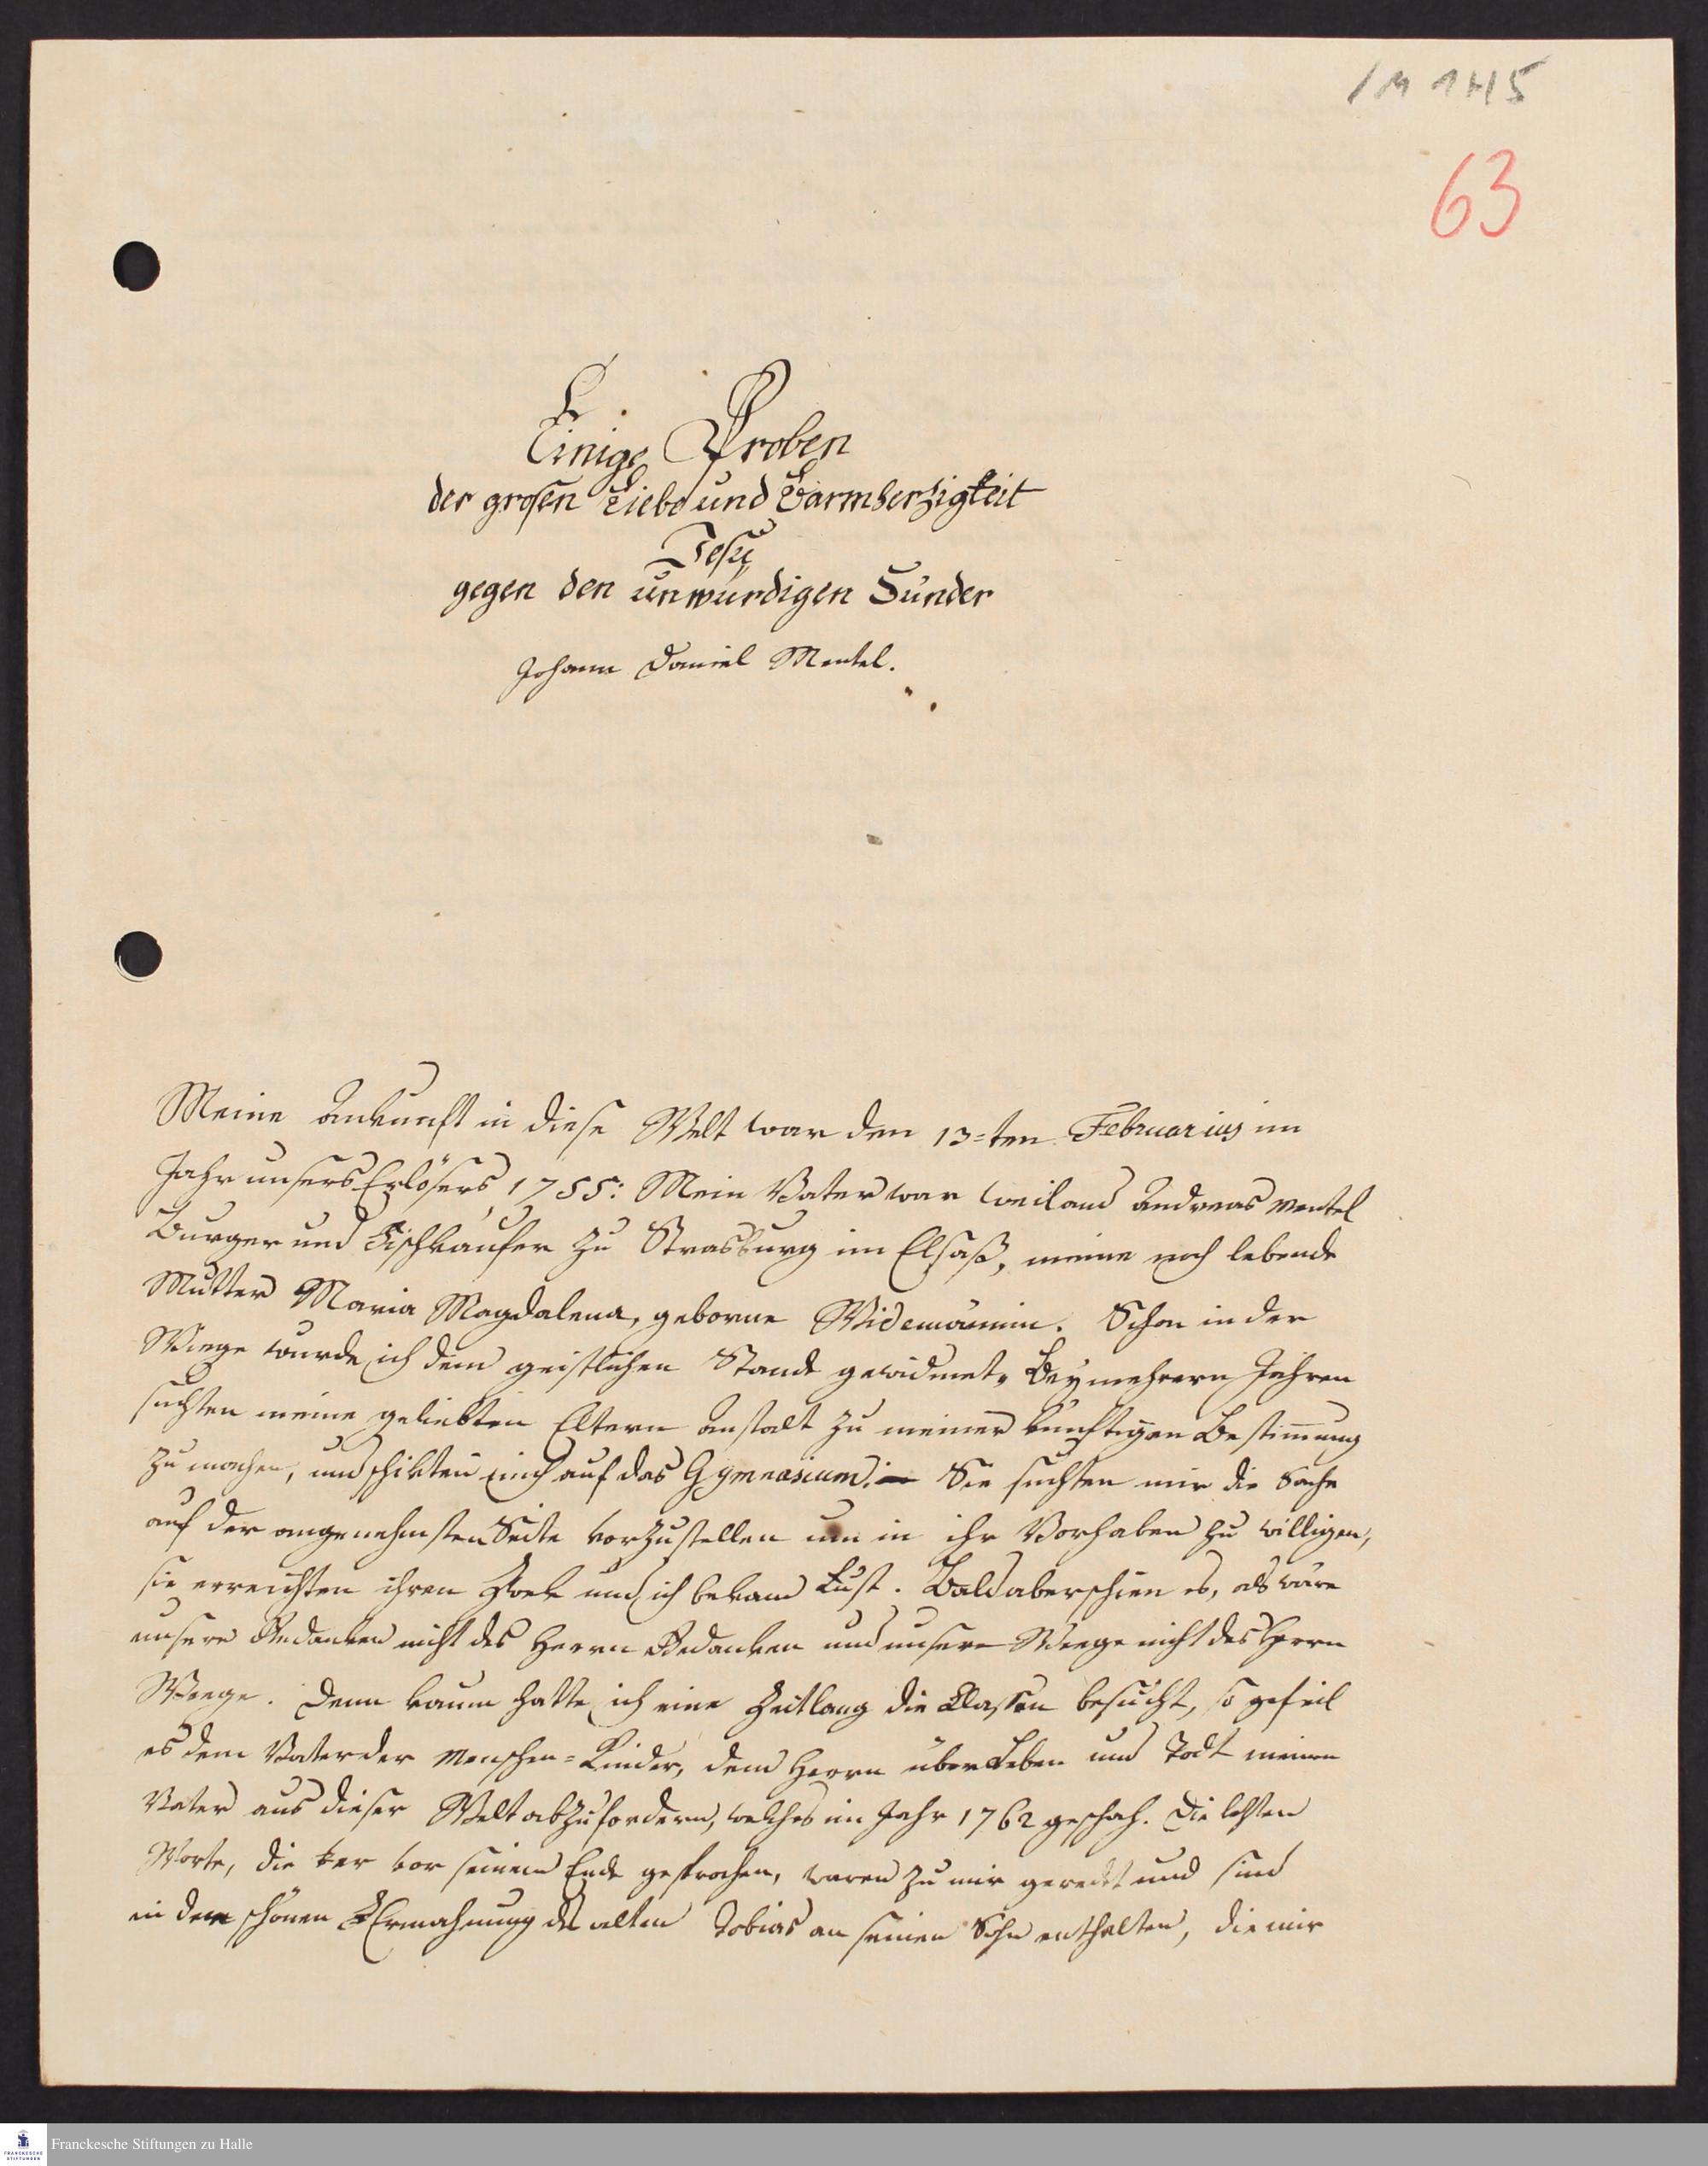 1M 1H5
63
Einige Proben
der grosen Liebe und Barmherzigkeit
Jesu
gegen den unwürdigen Sünder
Johann Daniel Mentel.
Meine Ankunft in diese Welt war den 13=ten Februarius im
Jahr unsers Erlösers, 1755: Mein Vater war weiland Andreas Mentel
Burger und Fischkäufer zu Strasburg im Elsaß, meine noch lebende
Mutter Maria Magdalena, geborne Widemännin. Schon in der
Wiege wurde ich dem geistlichen Stande gewidmet. Bey mehrern Jahren
suchten meine geliebten Eltern Anstalt zu meiner künftigen Bestim̄ung
zu machen, und schikten mich auf das Gymnasium. Sie suchten mir die Sache
auf der angenehmsten Seite vorzustellen um in ihr Vorhaben zu willigen,
sie erreichten ihren Zwek und ich bekam Lust. Bald aber schien es, als wäre
unsere Gedanken nicht des Herrn Gedanken und unsere Weege nicht des Herrn
Weege. Denn kaum hatte ich eine Zeitlang die Classen besucht, so gefiel
es dem Vater der Menschen=Kinder, dem Herrn über Leben und Todt meinen
Vater aus dieser Welt abzufordern, welches im Jahr 1762 geschah. Die lezten
Worte, die er vor seinem Ende gesprochen, waren zu mir geredet und sind
in der schönen Ermahnung des alten Tobias an seinen Sohn enthalten, die mir
Franckesche Stiftungen zu Halle